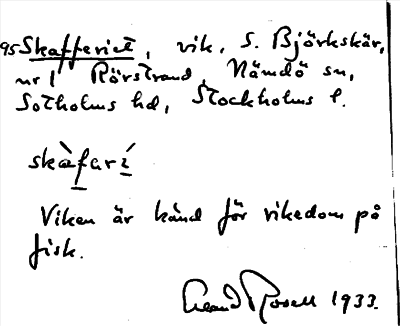 95 Skafferiet, vik, S. Björkskär,
nr 1 Rörstrand, Nämdö sn,
Sotholms hd, Stockholms l.
skàfarí
Viken är känd för rikedom på
fisk.
Rosell 1933.